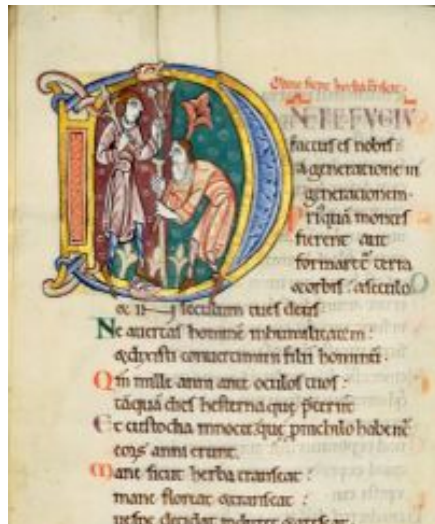 NE REFUGIU
factus es nobis
a generatione in
generationem.
Priusquā montes
fierent aut
formaret terra
& orbis: a seculo
& in seculum tu es deus
Ne avertas hominē in humilitatem:
& dixisti convertimini filii hominū.
Qm mille anni ante oculos tuos:
tāquā dies hesterna que preteriit
Et custodia in nocte: que pro nihilo habent
eoꝝ anni erunt.
Mane sicut herba transeat:
mane floreat & transeat:
vespe decidat induret & arescat